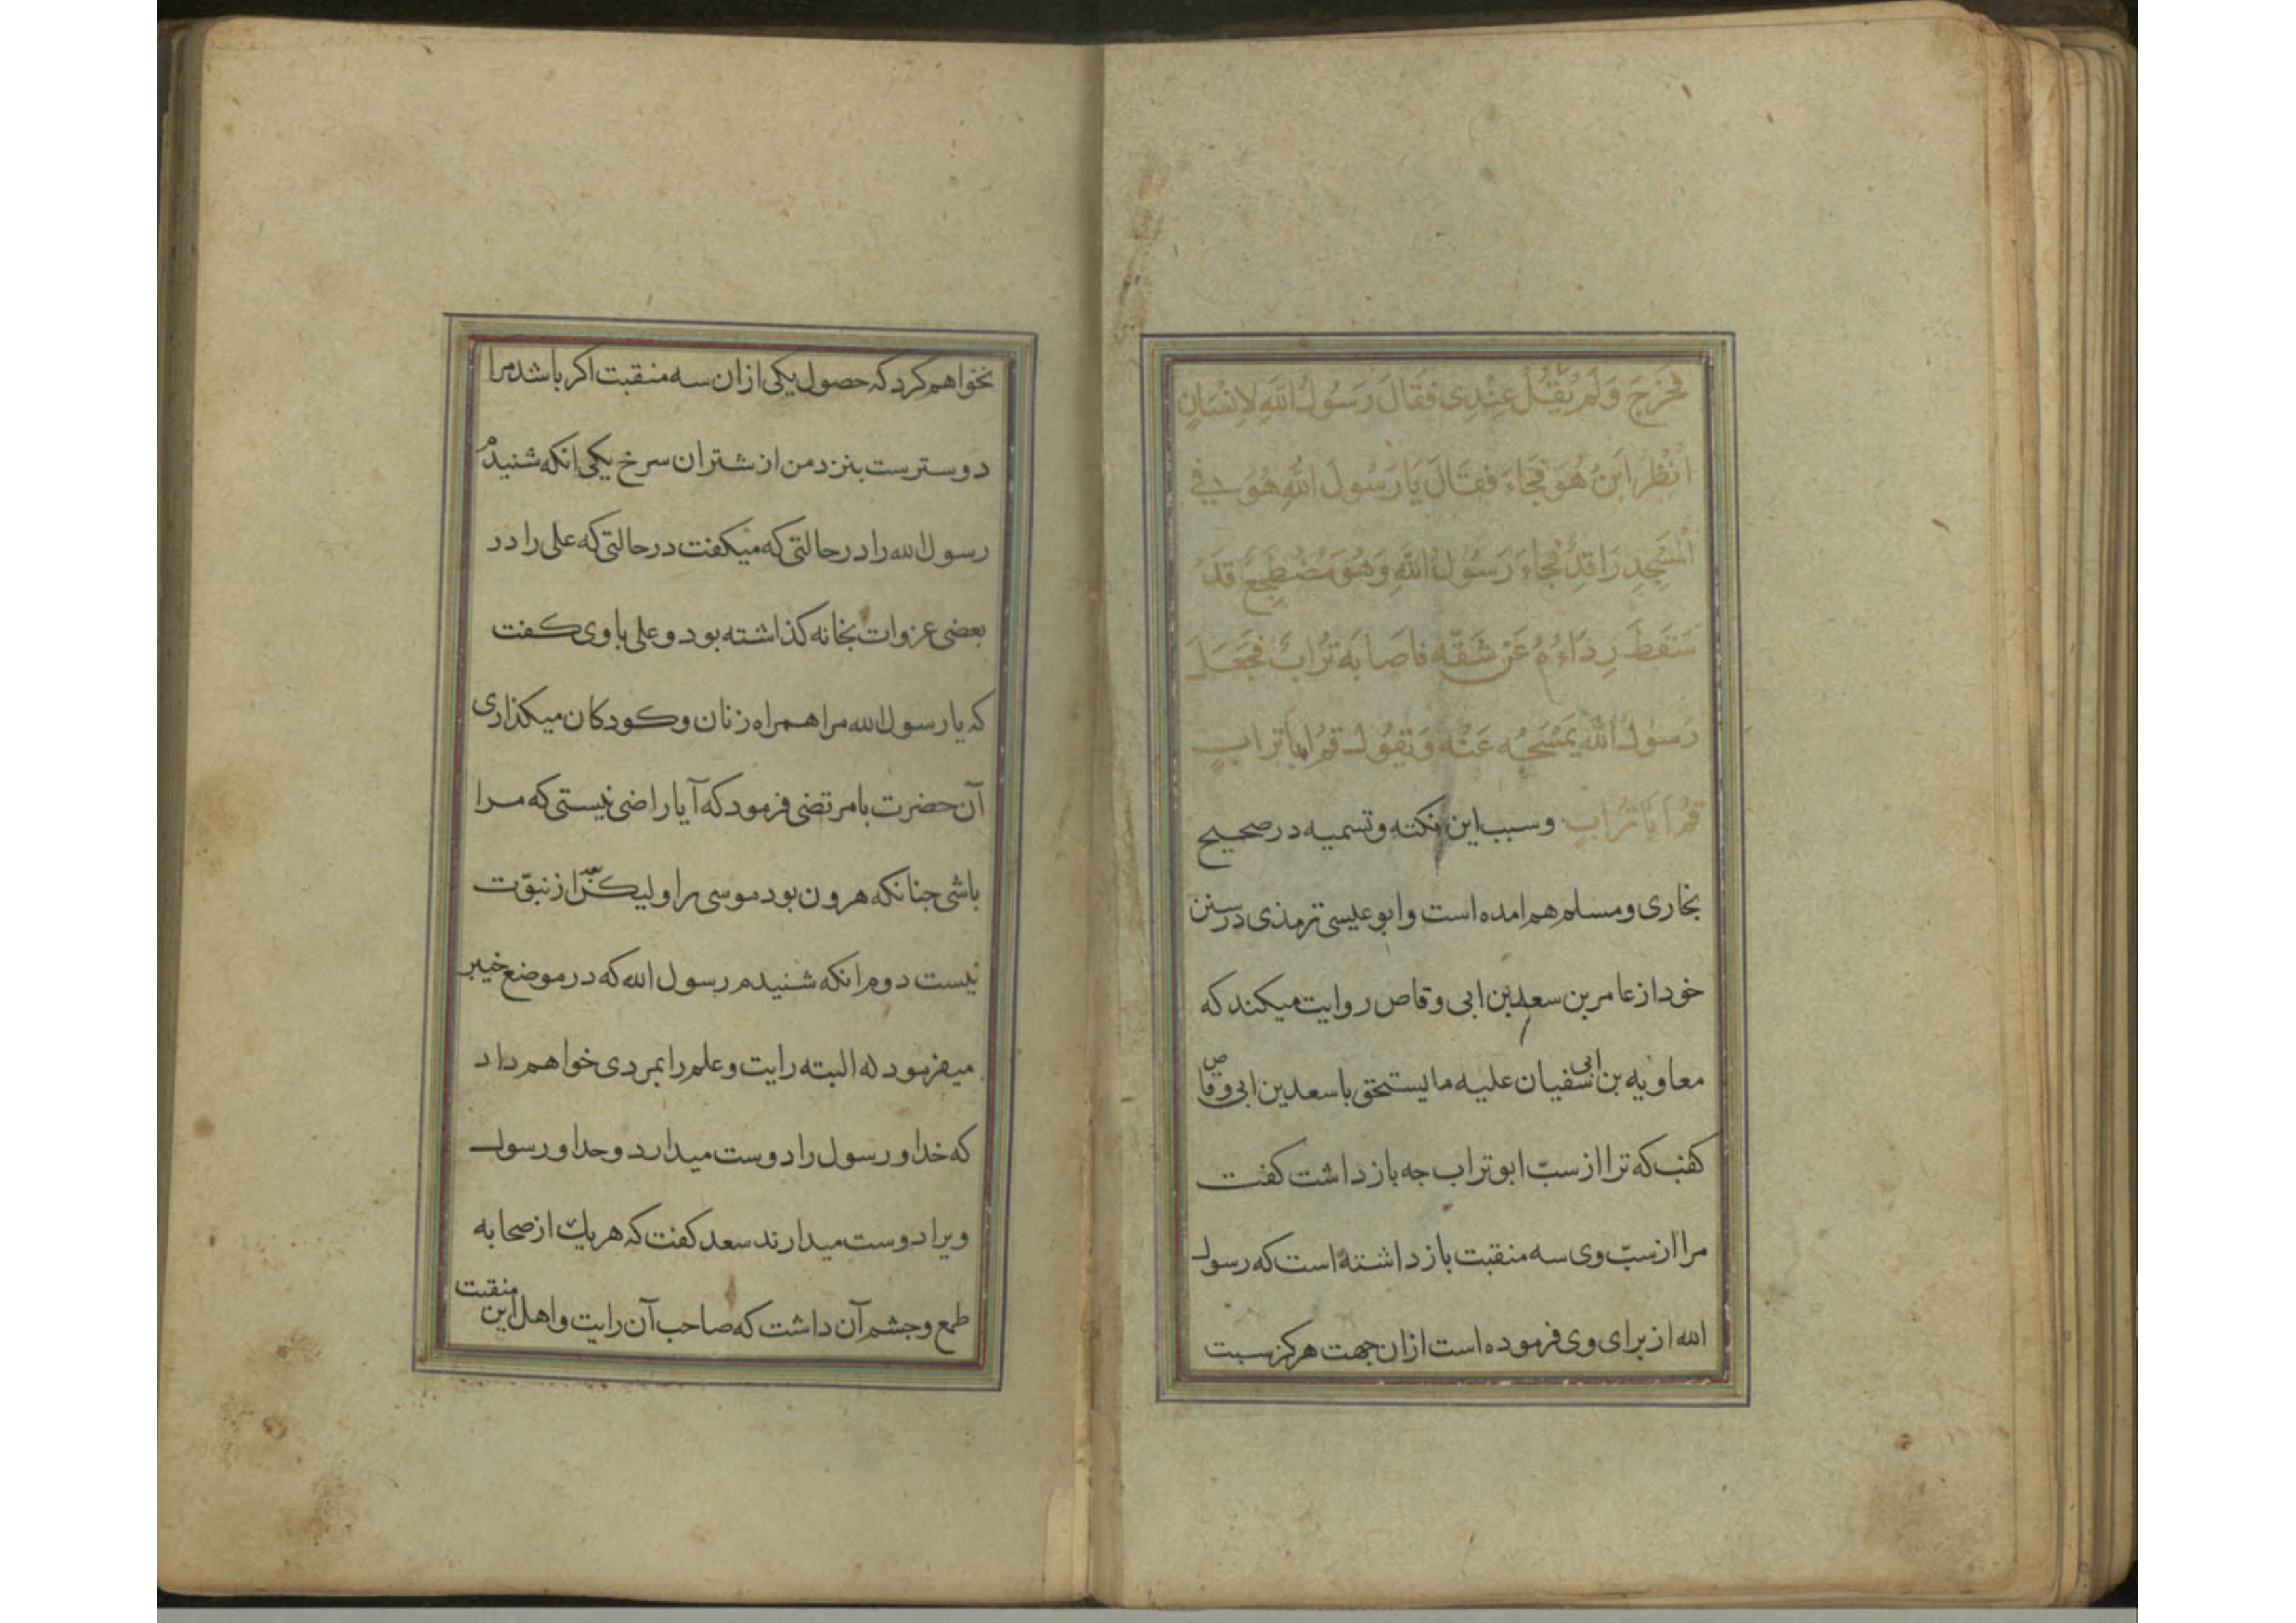 فَخَرَجَ وَلَمْ يَقُلْ عِنْدِی فَقَالَ رَسُولُ اللهِ لِاِنْسَانٍ
اُنْظُرْ اَیْنَ هُوَ فَجَاءَ فَقَالَ یَا رَسُولَ اللهِ هُوَ فِی
الْمَسْجِدِ رَاقِدٌ فَجَاءَ رَسُولُ اللهِ وَهُوَ مُضْطَجِعٌ قَدْ
سَقَطَ رِدَاءُهُ عَنْ شَقّهِ فاَصَابَهُ تُرَابٌ فَجَعَلَ
رَسُولُ اللهِ یَمْسَحُهُ عَنْهُ وَیَقُولُ قُمْ اَبَا تُرابٍ
قُمْ اَبَا تُرَابٍ وسبب این نکته وتسمیه در صحیح
بخاری ومسلم هم امده است وابو عیسی ترمذی در سنن
خود از عامر بن سعد بن ابی وقاص روایت میکند که
معاویه بن ابی سفیان علیه ما یستحق با سعد بن ابی وقاص
کفت که ترا از سبّ ابو تراب جه باز داشت کفت
مرا از سبّ وی سه منقبت باز داشته است که رسول
الله از برای وی فرموده است ازان جهت هرکز سبت
نخواهم کرد که حصول یکی ازان سه منقبت اکر باشد مرا
دوسترست بنزد من از شتران سرخ یکی انکه شنیدم
رسول الله را در حالتی که میکفت در حالتی که علی را در
بعضی عزوات بخانه کذاشته بود و علی باوی کفت
که یا رسول الله مرا همراه زنان وکودکان میکذاری
آن حضرت با مرتضی فرمود که آیا راضی نیستی که مرا
باشی جنانکه هرون بود موسی را ولیکن بعد از نبوّت
نیست دوم انکه شنیدم رسول الله که در موضع خیبر
میفرمود که البته رایت وعلم را بمردی خواهم داد
که خدا ورسول را دوست میدارد وخدا ورسول
ویرا دوست میدارند سعد کفت که هر یك از صحابه
طمع وجشم آن داشت که صاحب آن رایت واهل این منقبت